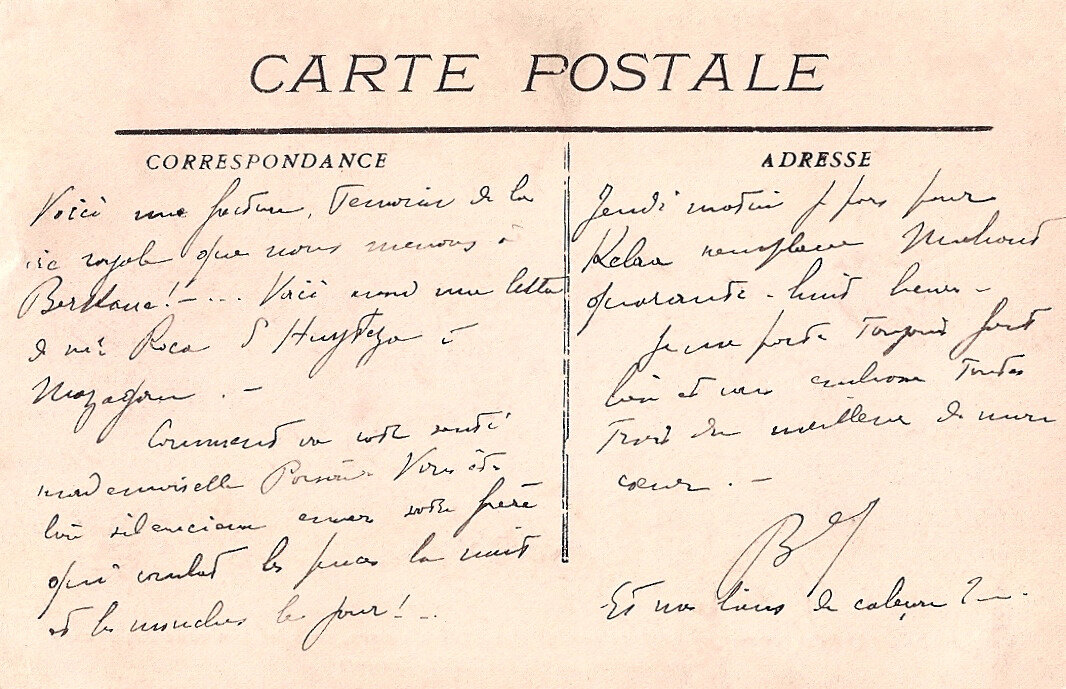 CARTE POSTALE
CORRESPONDANCE
Voici une facture, Temoin de la
vie royale que nous menons à
! - ... Voici aussi une lettre
de Roca d'
Mazagan . -
Comment va votre santé
mademoiselle Vous êtes
bien silencieuse envers votre frère
qui combat les puces la nuit
et les mouches le jour! ..
ADRESSE
Jeudi matin je pars pour
Kelaa remplacer
quarante-huit heures -
Je me porte Toujours fort
bien et vous embrasse Toutes
Trois du meilleur de mon
cœur . -
Et nos de caleçon ? -.